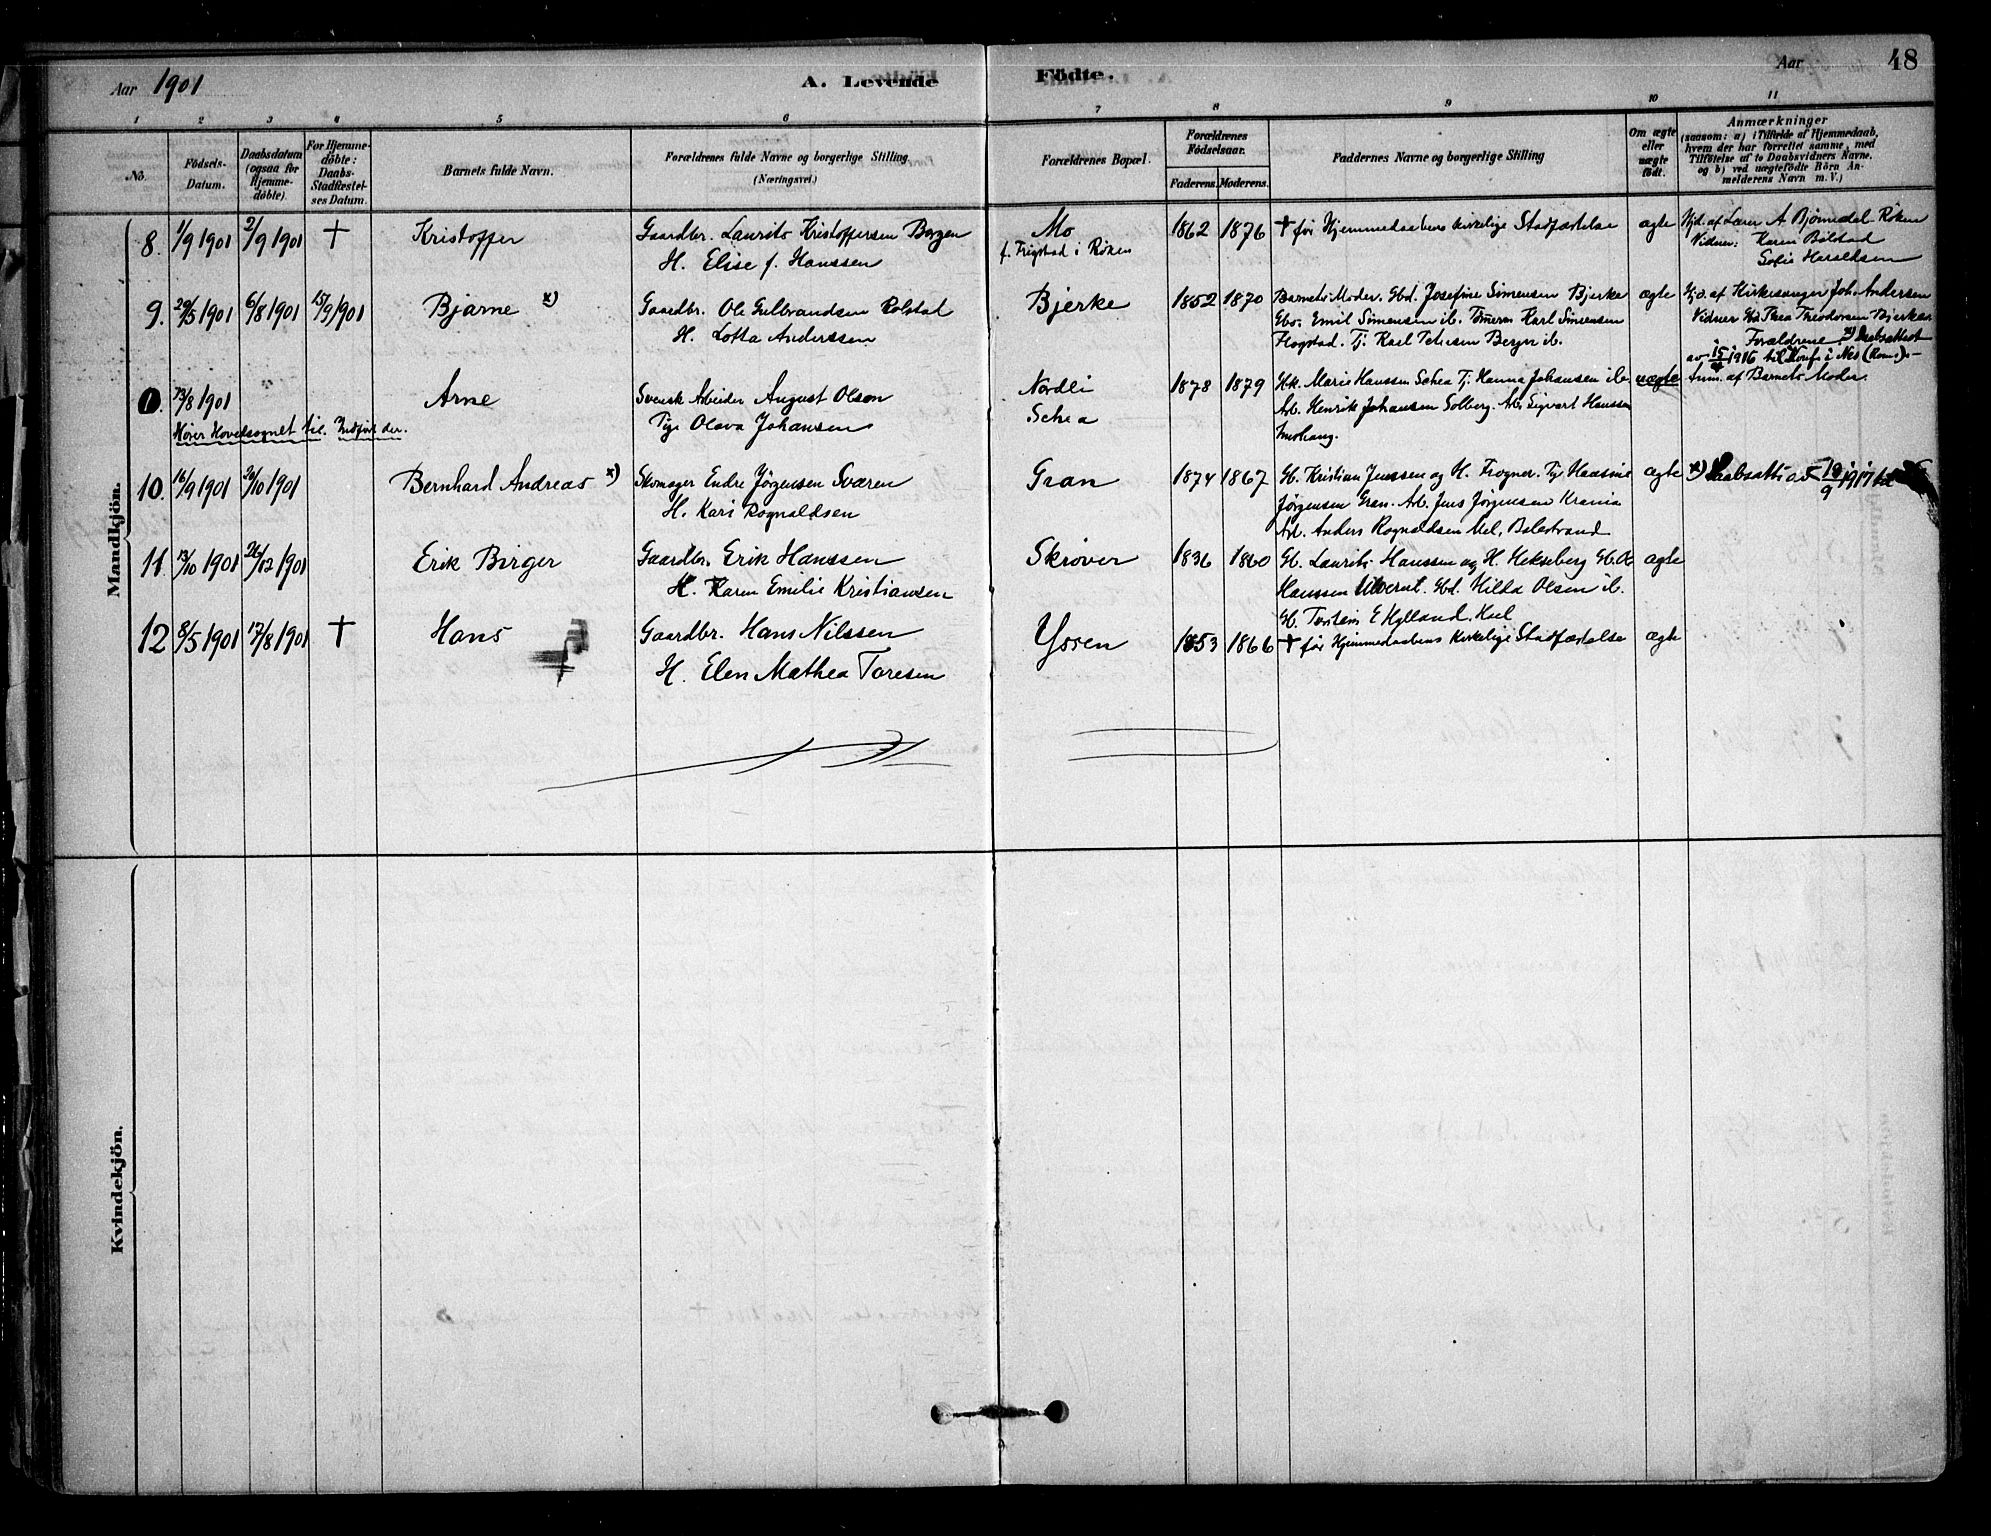 Aar 1901
A. Levende Fødte.
Aar
48
1 2 3 4 5 6 7 8 9 10 11
No. | Fødsels-Datum. | Daabsdatum (ogsaa for Hjemmedøbte) | For Hjemmedøbte: Daabs-Stadfæstelses Datum. | Barnets fulde Navn. | Forældrenes fulde Navne og borgerlige Stilling. (Næringsvei.) | Forældrenes Bopæl. | Forældrenes Fødselsaar. Faderens. Moderens. | Faddernes Navne og borgerlige Stilling | Om ægte eller uægte født. | Anmærkninger (saasom: a) i Tilfælde af Hjemmedaab, hvem der har forrettet samme, med Tilføielse af to Daabsvidners Navne, og b) ved uægtefødte Børn Anmelderens Navn m. V.)
Mandkjön.
8. 1/9 1901 2/9 1901 † Kristoffer Gaardbr. Laurits Kristoffersen Borgen Mo 1862 1876 † før Hjemmedaabens kirkelige Stadfæstelse ægte Hjd. af Lærer A Bjørnedal Røken
H. Elise f. Hanssen f. Frigstad i Røken Vidner: Karen Bølstad
Sofie Haraldsen
9. 29/5 1901 6/8 1901 15/9 1901 Bjarne x) Gaardbr. Ole Gulbrandsen Rolstad Bjerke 1852 1870 Barnets Moder. Gbd. Josefine Simensen Bjerke ægte Hjd. af Kirkesanger Joh. Andersen
H. Lotta Anderssen Gbs. Emil Simensen ib. Tømerm. Karl Simensen Vidner Theodorsen
Flogstad. Tj. Karl Petersen ib. Forældrene x) Daabsattest
av 15/ 1916 til Konf. i Nes (Rom.).-
13/8 1901 Arne Svensk Arbeider August Olson Nordli 1878 1879 Hk. Marie Hanssen Schea Tj. Hanna Johansen ib. uægte Anm. af Barnets Moder.
Pige Olava Johansen Schea Arb. Henrik Johansen Solberg. Arb. Sigvart Hanssen
Hører Hovedsognet til. Indført der.
10. 16/9 1901 20/10 1901 Bernhard Andreas x) Skomager Endre Jørgensen Sværen Gran 1874 1867 G. Kristian Jenssen og H. Frogner. Pige ægte x) Daabsatt. av 19/9 1917
H. Kari Rognaldsen Jørgensen Gran. Arb. Jens Jørgensen Krania
Arb. Anders Rognaldsen Mel, Balestrand
11. 13/10 1901 26/12 1901 Erik Birger Gaardbr. Erik Hanssen Skrøver 1836 1860 G. Laurits Hanssen og H. Hekseberg ægte
H. Karen Emilie Kristiansen Hanssen Ulverud. Gbd. Hilda Olsen ib.
G. Torstein E Hylland, Hiel
12 8/5 1901 17/8 1901 † Hans Gaardbr. Hans Nilssen Yssen 1853 1866 † før Hjemmedaabens Kirkelige Stadfæstelse ægte
H. Elen Mathea Toresen
Kvindekjön.